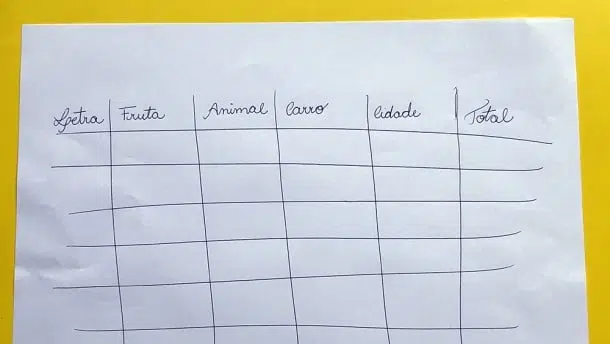 Letra Fruta Animal Carro Cidade Total